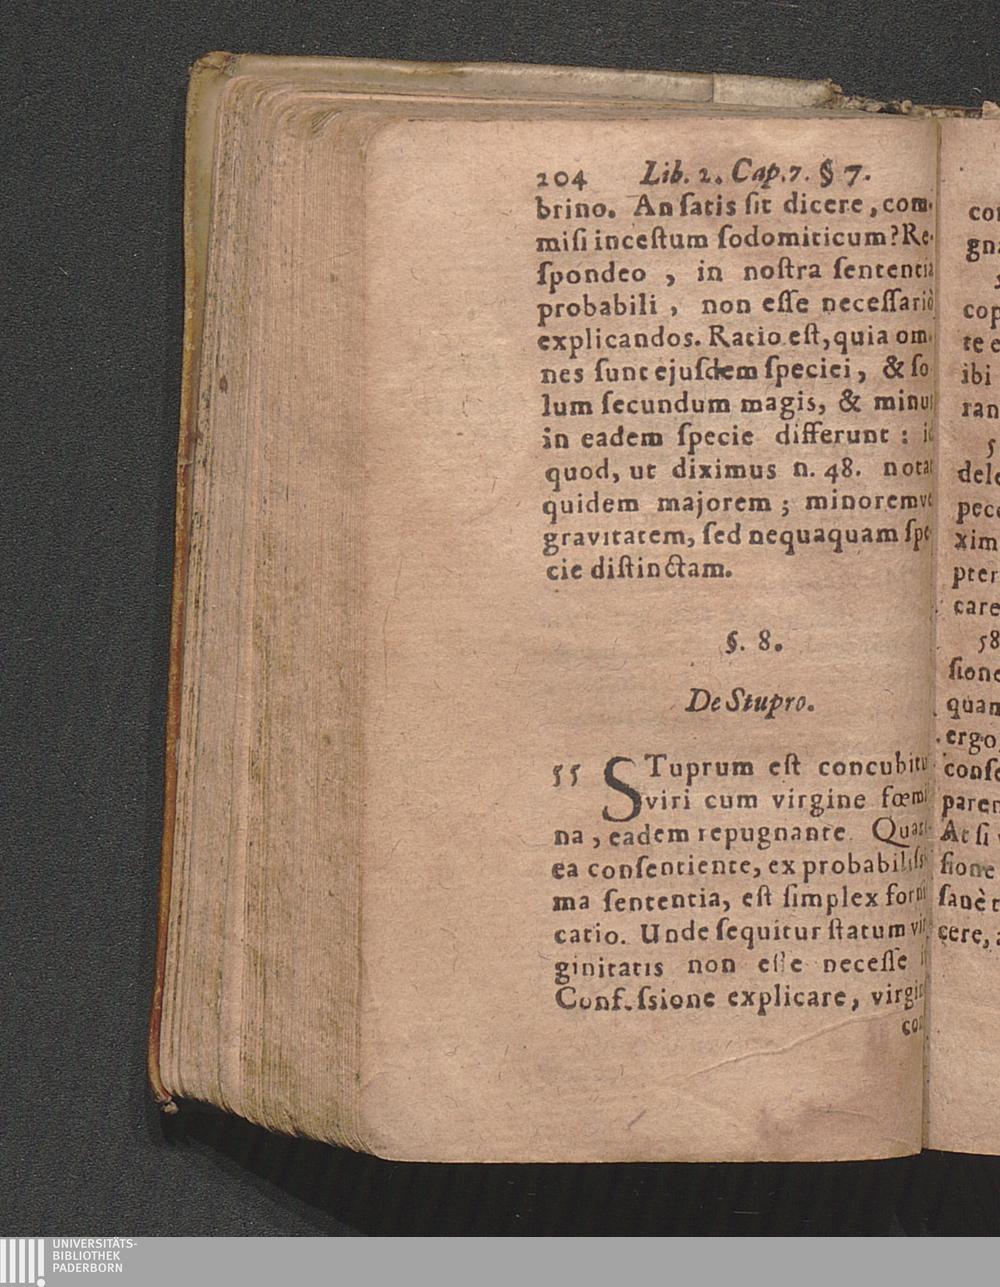 204 Lib. 2. Cap. 7. § 7.
brino. An ſatis ſit dicere, com-
miſi inceſtum ſodomiticum? Re-
ſpondeo, in noſtra ſententia
probabili, non eſſe neceſſariò
explicandos. Ratio eſt, quia om-
nes ſunt ejuſdem ſpeciei, & ſo
lum ſecundum magis, & minus
in eadem ſpecie differunt: id
quod, ut diximus n. 48. notat
quidem majorem; minoremve
gravitatem, ſed nequaquam ſpe
cie diſtinctam.
§. 8.
De Stupro.
55 STuprum eſt concubitu
viri cum virgine fœmi
na, eadem repugnante. Quare
ea conſentiente, ex probabiliſsi
ma ſententia, eſt ſimplex forni
catio. Unde ſequitur ſtatum vir
ginitatis non eſſe neceſſe
Conf.ſsione explicare, virgin
con
con
gna
5
cop
te e
ibi
ran
5
dele
pecc
xim
pter
care
58
ſione
quam
ergo
conſe
paren
At ſi
ſione
ſanè
cere,
UNIVERSITÄTS-
BIBLIOTHEK
PADERBORN